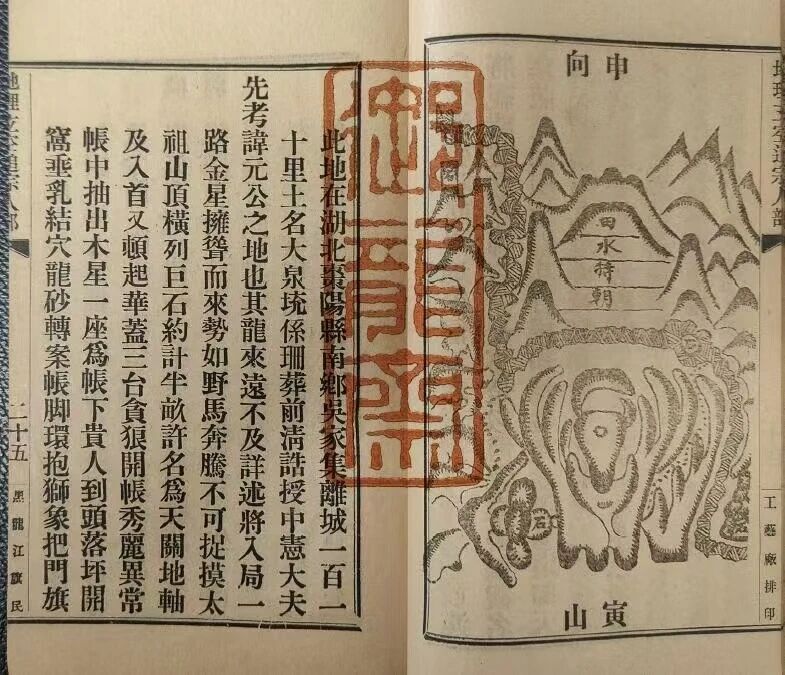 追宗人部
申向
田水特朝
石
寅山
工藝廠排印
此地在湖北棗陽縣南鄉吳家集離城一百一
十里土名大泉係珊葬前清誥授中憲大夫
先考諱元公之地也其龍來遠不及詳述將入局一
路金星擁聳而來勢如野馬奔騰不可捉摸太
祖山頂橫列巨石約計半畝許名爲天關地軸
及入首又頓起華蓋三台貪狼開帳秀麗異常
帳中抽出木星一座爲帳下貴人到頭落坪開
窩垂乳結穴龍砂轉案帳脚環抱獅象把門旗
二十五
黑龍江旗民
龍齋